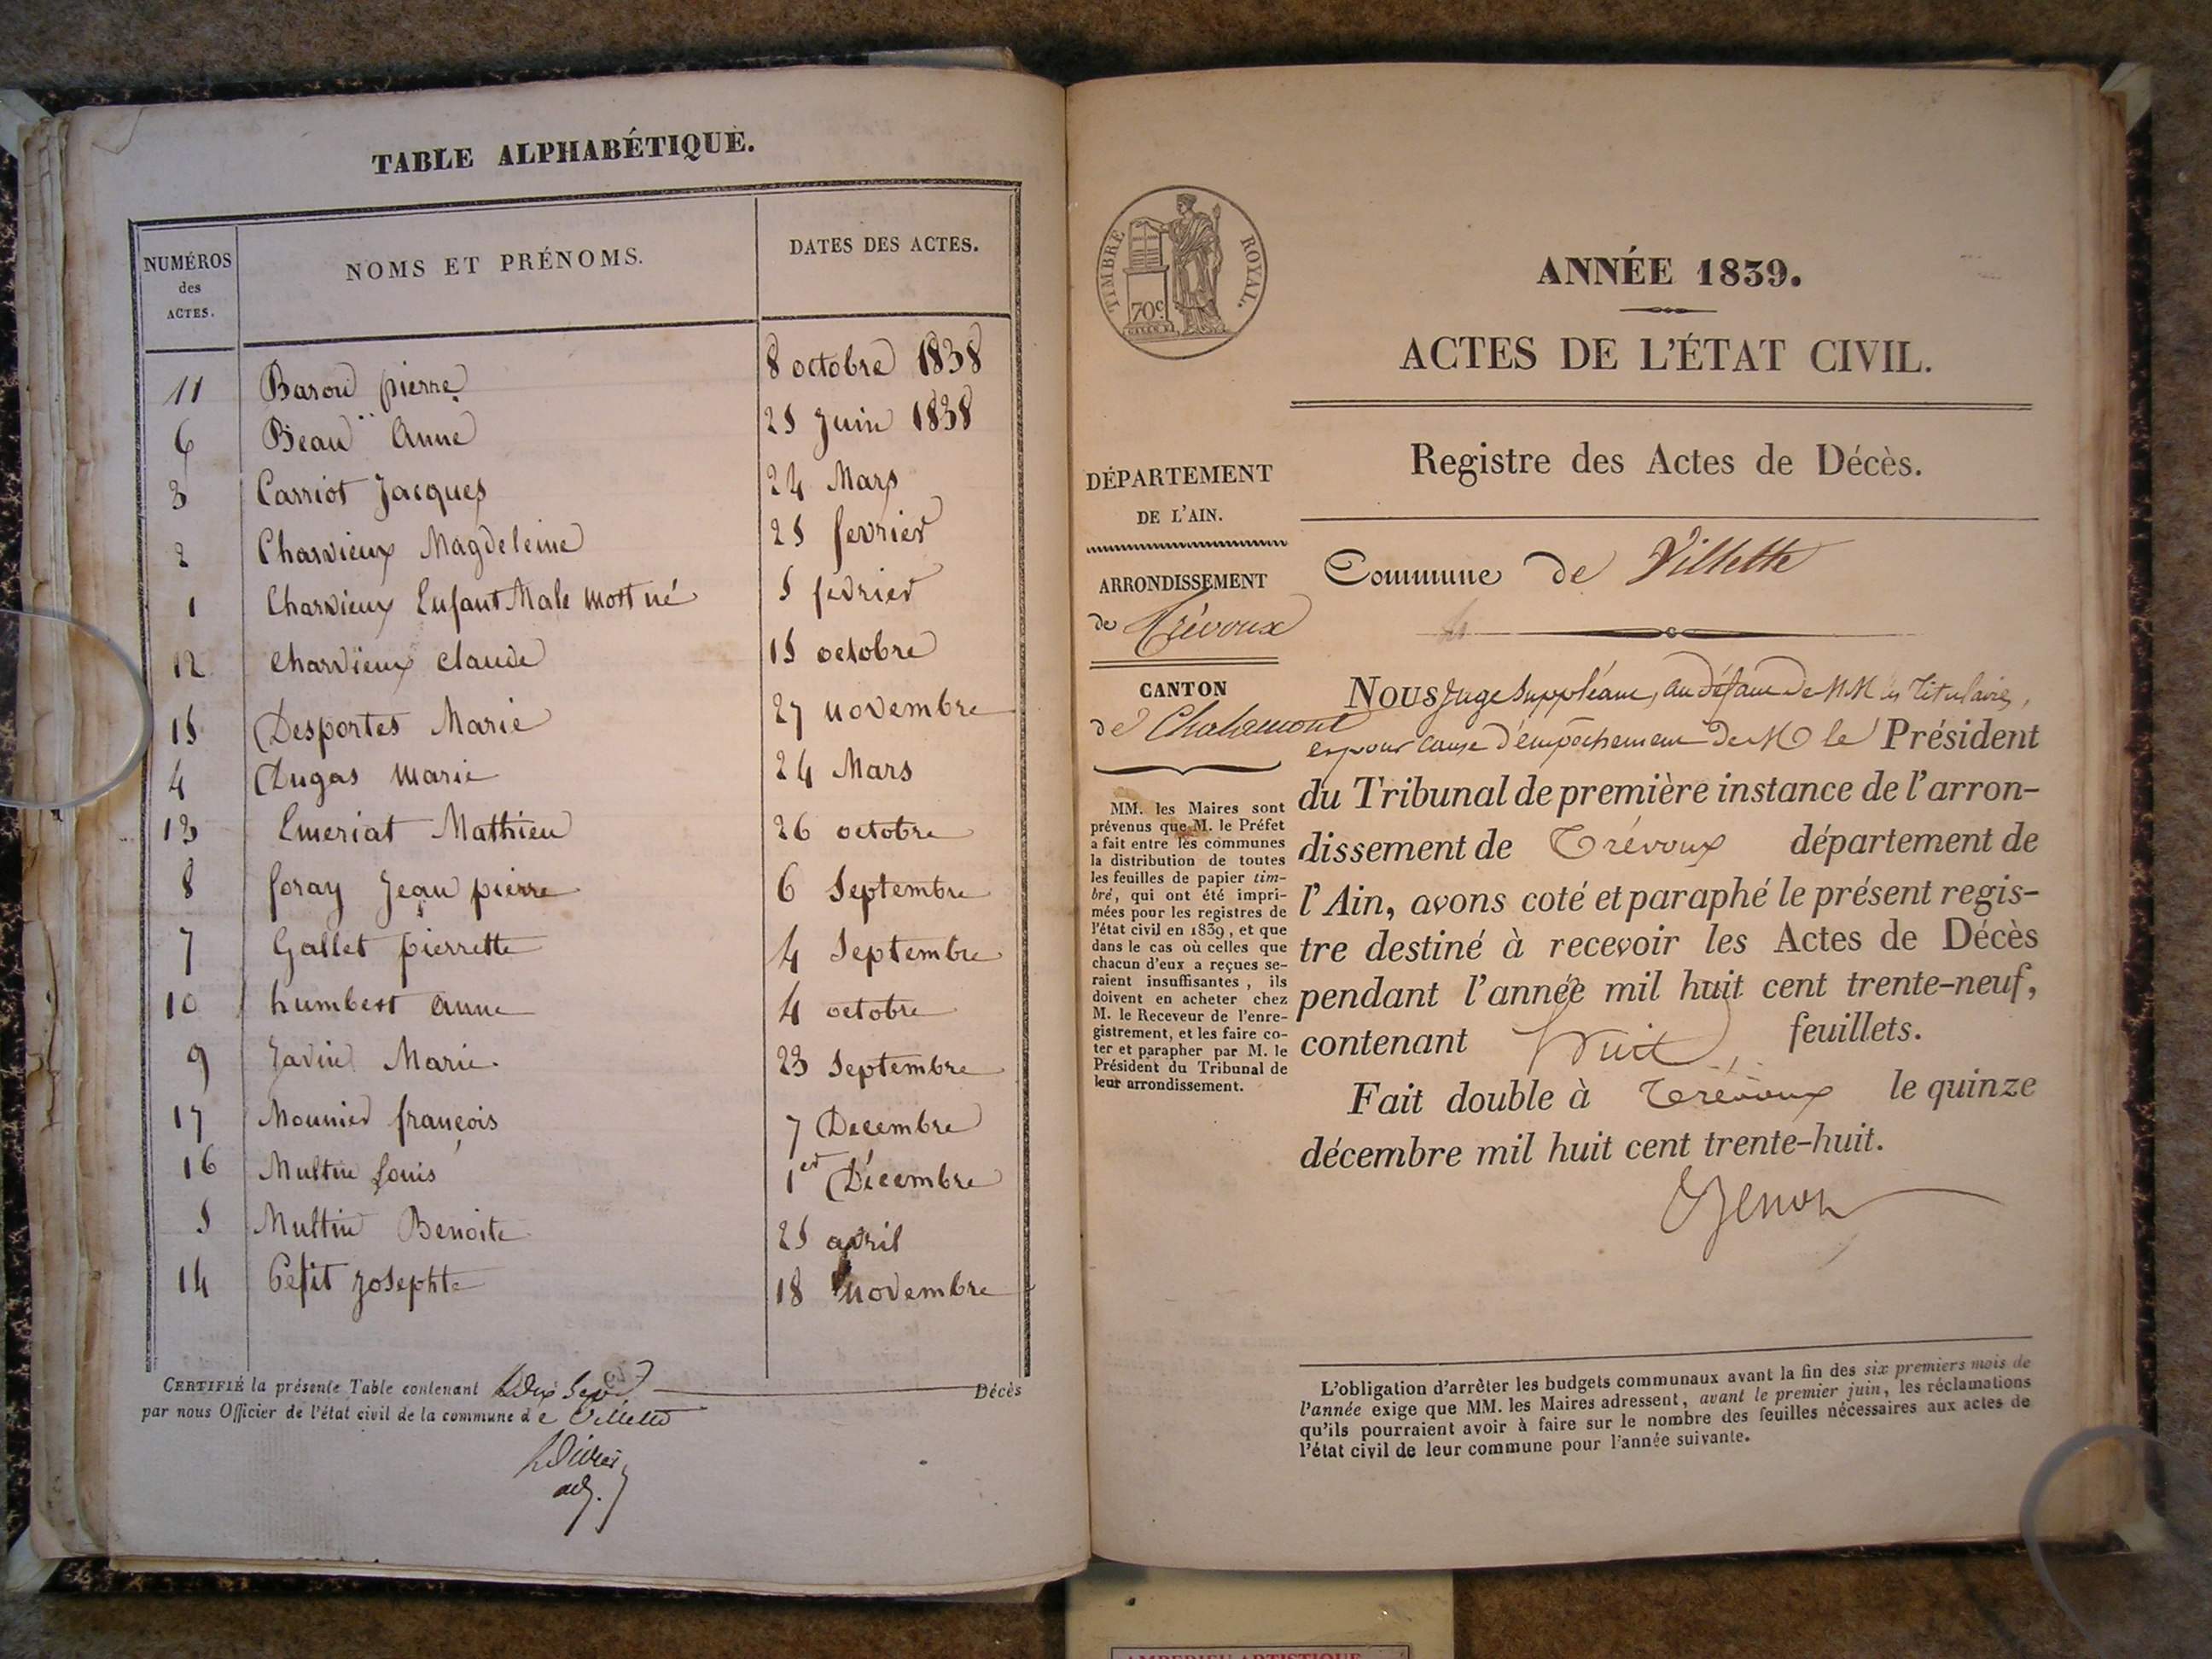 TABLE ALPHABÉTIQUE.
NUMÉROS des ACTES. NOMS ET PRÉNOMS. DATES DES ACTES.
11 Baron pierre 8 octobre 1838
6 Beau Anne 25 Juin 1838
3 Carriot Jacques 24 Mars
2 Charvieux Magdeleine 25 fevrier
1 Charvieux Enfant Male mort né 5 fevrier
12 Charvieux Claude 15 octobre
15 Desportes Marie 27 novembre
4 Dugas marie 24 Mars
13 Emeriat Mathieu 26 octobre
8 foray Jean pierre 6 Septembre
7 Gallet pierrette 4 Septembre
10 humbert anne 4 octobre
9 Javin Marie 23 Septembre
17 Mounier françois 7 Decembre
16 Multin Louis 1er Décembre
5 Multin Benoite 25 avril
14 Petit Josephte 18 novembre
CERTIFIÉ la présente Table contenant dix Sept Décès
par nous Officier de l'état civil de la commune de Villette
adj.
TIMBRE ROYAL.
70c
DÉPARTEMENT
DE L'AIN.
ARRONDISSEMENT
de Trévoux
CANTON
de Chalamont
MM. les Maires sont
prévenus que M. le Préfet
a fait entre les communes
la distribution de toutes
les feuilles de papier tim-
bré, qui ont été impri-
mées pour les registres de
l'état civil en 1839, et que
dans le cas où celles que
chacun d'eux a reçues se-
raient insuffisantes, ils
doivent en acheter chez
M. le Receveur de l'enre-
gistrement, et les faire co-
ter et parapher par M. le
Président du Tribunal de
leur arrondissement.
ANNÉE 1839.
ACTES DE L'ÉTAT CIVIL.
Registre des Actes de Décès.
Commune de Villette
NOUS Juge Suppléant, au défaut de MM les Titulaires,
et pour cause d'empêchement de M le Président
du Tribunal de première instance de l'arron-
dissement de Trévoux département de
l'Ain, avons coté et paraphé le présent regis-
tre destiné à recevoir les Actes de Décès
pendant l'année mil huit cent trente-neuf,
contenant huit feuillets.
Fait double à Trévoux le quinze
décembre mil huit cent trente-huit.
L'obligation d'arrêter les budgets communaux avant la fin des six premiers mois de
l'année exige que MM. les Maires adressent, avant le premier juin, les réclamations
qu'ils pourraient avoir à faire sur le nombre des feuilles nécessaires aux actes de
l'état civil de leur commune pour l'année suivante.
AMBERIEU ARTISTIQUE